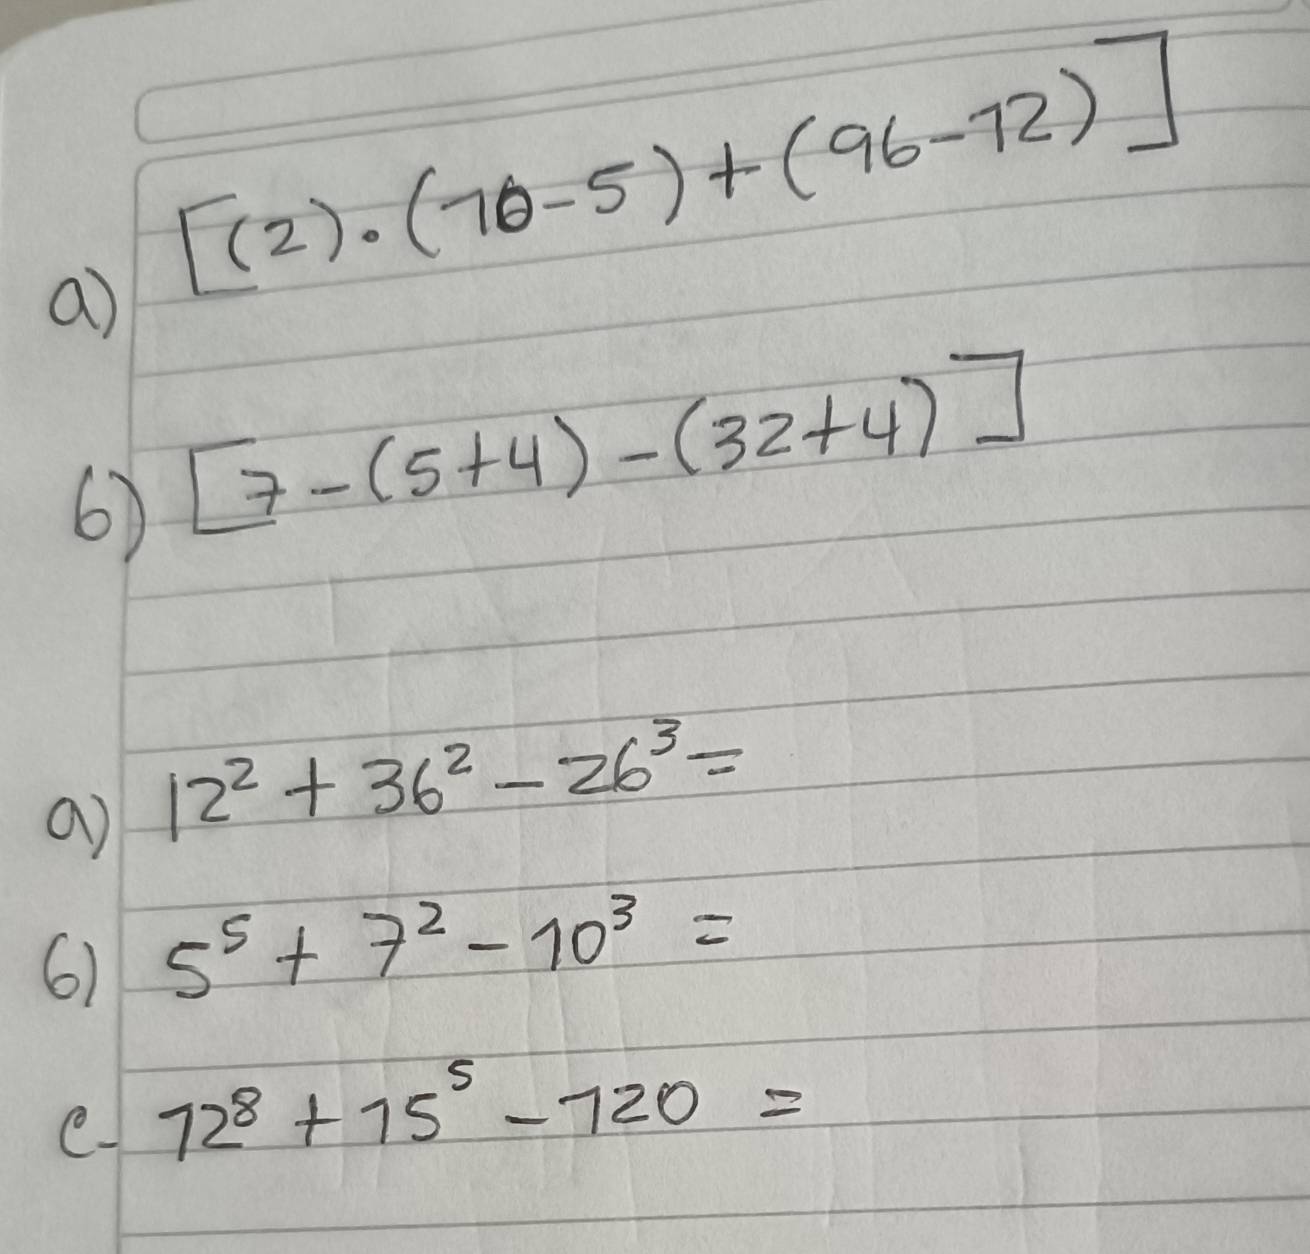 a) [(2).(10-5)+(96-12)]
b) [7-(5+4)-(32+4)]
a) 12² + 36² - 26³ =
b) 5⁵ + 7² - 10³ =
c- 12⁸ + 15⁵ - 120 =